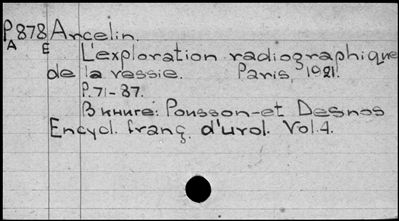 P878 Arcelin.
A E
L'exploration radiographique
de la vessie. Paris, 1921.
P. 71-87.
В книге: Pousson-et Desnos
Encycl. franç. d'urol. Vol. 4.